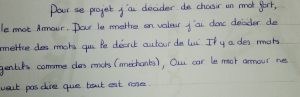 Pour se projet j'ai décider de choisir un mot fort,
le mot Amour. Pour le mettre en valeur j'ai donc décider de
mettre des mots qui le décrit autour de lui. Il y a des mots
gentils comme des mots (méchants), Oui car le mot amour ne
veut pas dire que tout est rose.